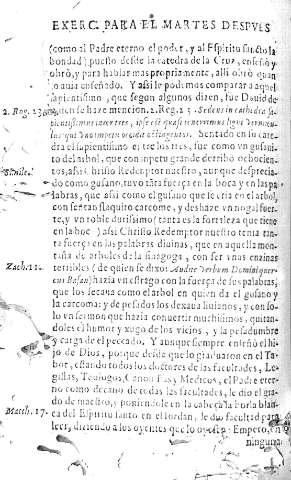 EXERC. PARA EL MARTES DESPVES
(como al Padre eterno el poder, y al Espiritu sancto la
bondad) puesto desde la catedra de la Cruz, enseñó y
obrò, y para hablar mas propriamente, alli obrò quan
to auia enseñado. Y assi le podemos comparar a aquel
sapientissimo, que segun algunos dizen, fue Dauid de
quien se haze mencion. 2. Reg. 23. Sedens in cathedra sa
2. Reg. 23.
pientissimus inter tres, ipse est quasi tenerrimus ligni vermicu
lus qui octingentos interfecit. Sentado en su cate
dra el sapientissimo entre los tres, fue como vn gusani-
llo del arbol, que con impetu grande derribò ochocien-
Simile.
tos, assi Christo Redemptor nuestro, aunque desprecia-
do como gusano, tuuo tãta fuerça en la boca y en las pa
labras, que assi como el gusano que se cria en el arbol,
con ser tan flaquito carcome, y deshaze vn nogal fuer-
te, y vn roble durissimo, tanta es la fortaleza que tiene
en la boca) assi Christo Redemptor nuestro tenia tan-
ta fuerça en las palabras diuinas, que en aquella mon-
taña de arboles de la sinagoga, con ser vnas enzinas
terribles (de quien se dixo: Audite verbum Domini quer-
Zach. 11.
cus Basan) hazia vn estrago con la fuerça de sus palabras,
que los secaua como el arbol en quien da el gusano y
la carcoma: y de pesados los dexaua liuianos, y con so-
lo vn sermon que hazia conuertir muchissimos, quitan-
doles el humor y xugo de los vicios, y la pesadumbre
y carga del peccado. Y aunque siempre enseñò el hi
jo de Dios, porque desde que lo graduaron en el Ta-
bor, estando todos los doctores de las facultades, Le-
gistas, Teologos, Canonistas y Medicos, el Padre eter-
no como decano de todas las facultades, le dio el gra-
do de maestro, y poniendole en la cabeça la borla blan
Matth. 17.
ca del Espiritu santo en el Iordan, le dio facultad para
leer, diziendo a los oyentes que lo oyessen: Empero, en
ninguna